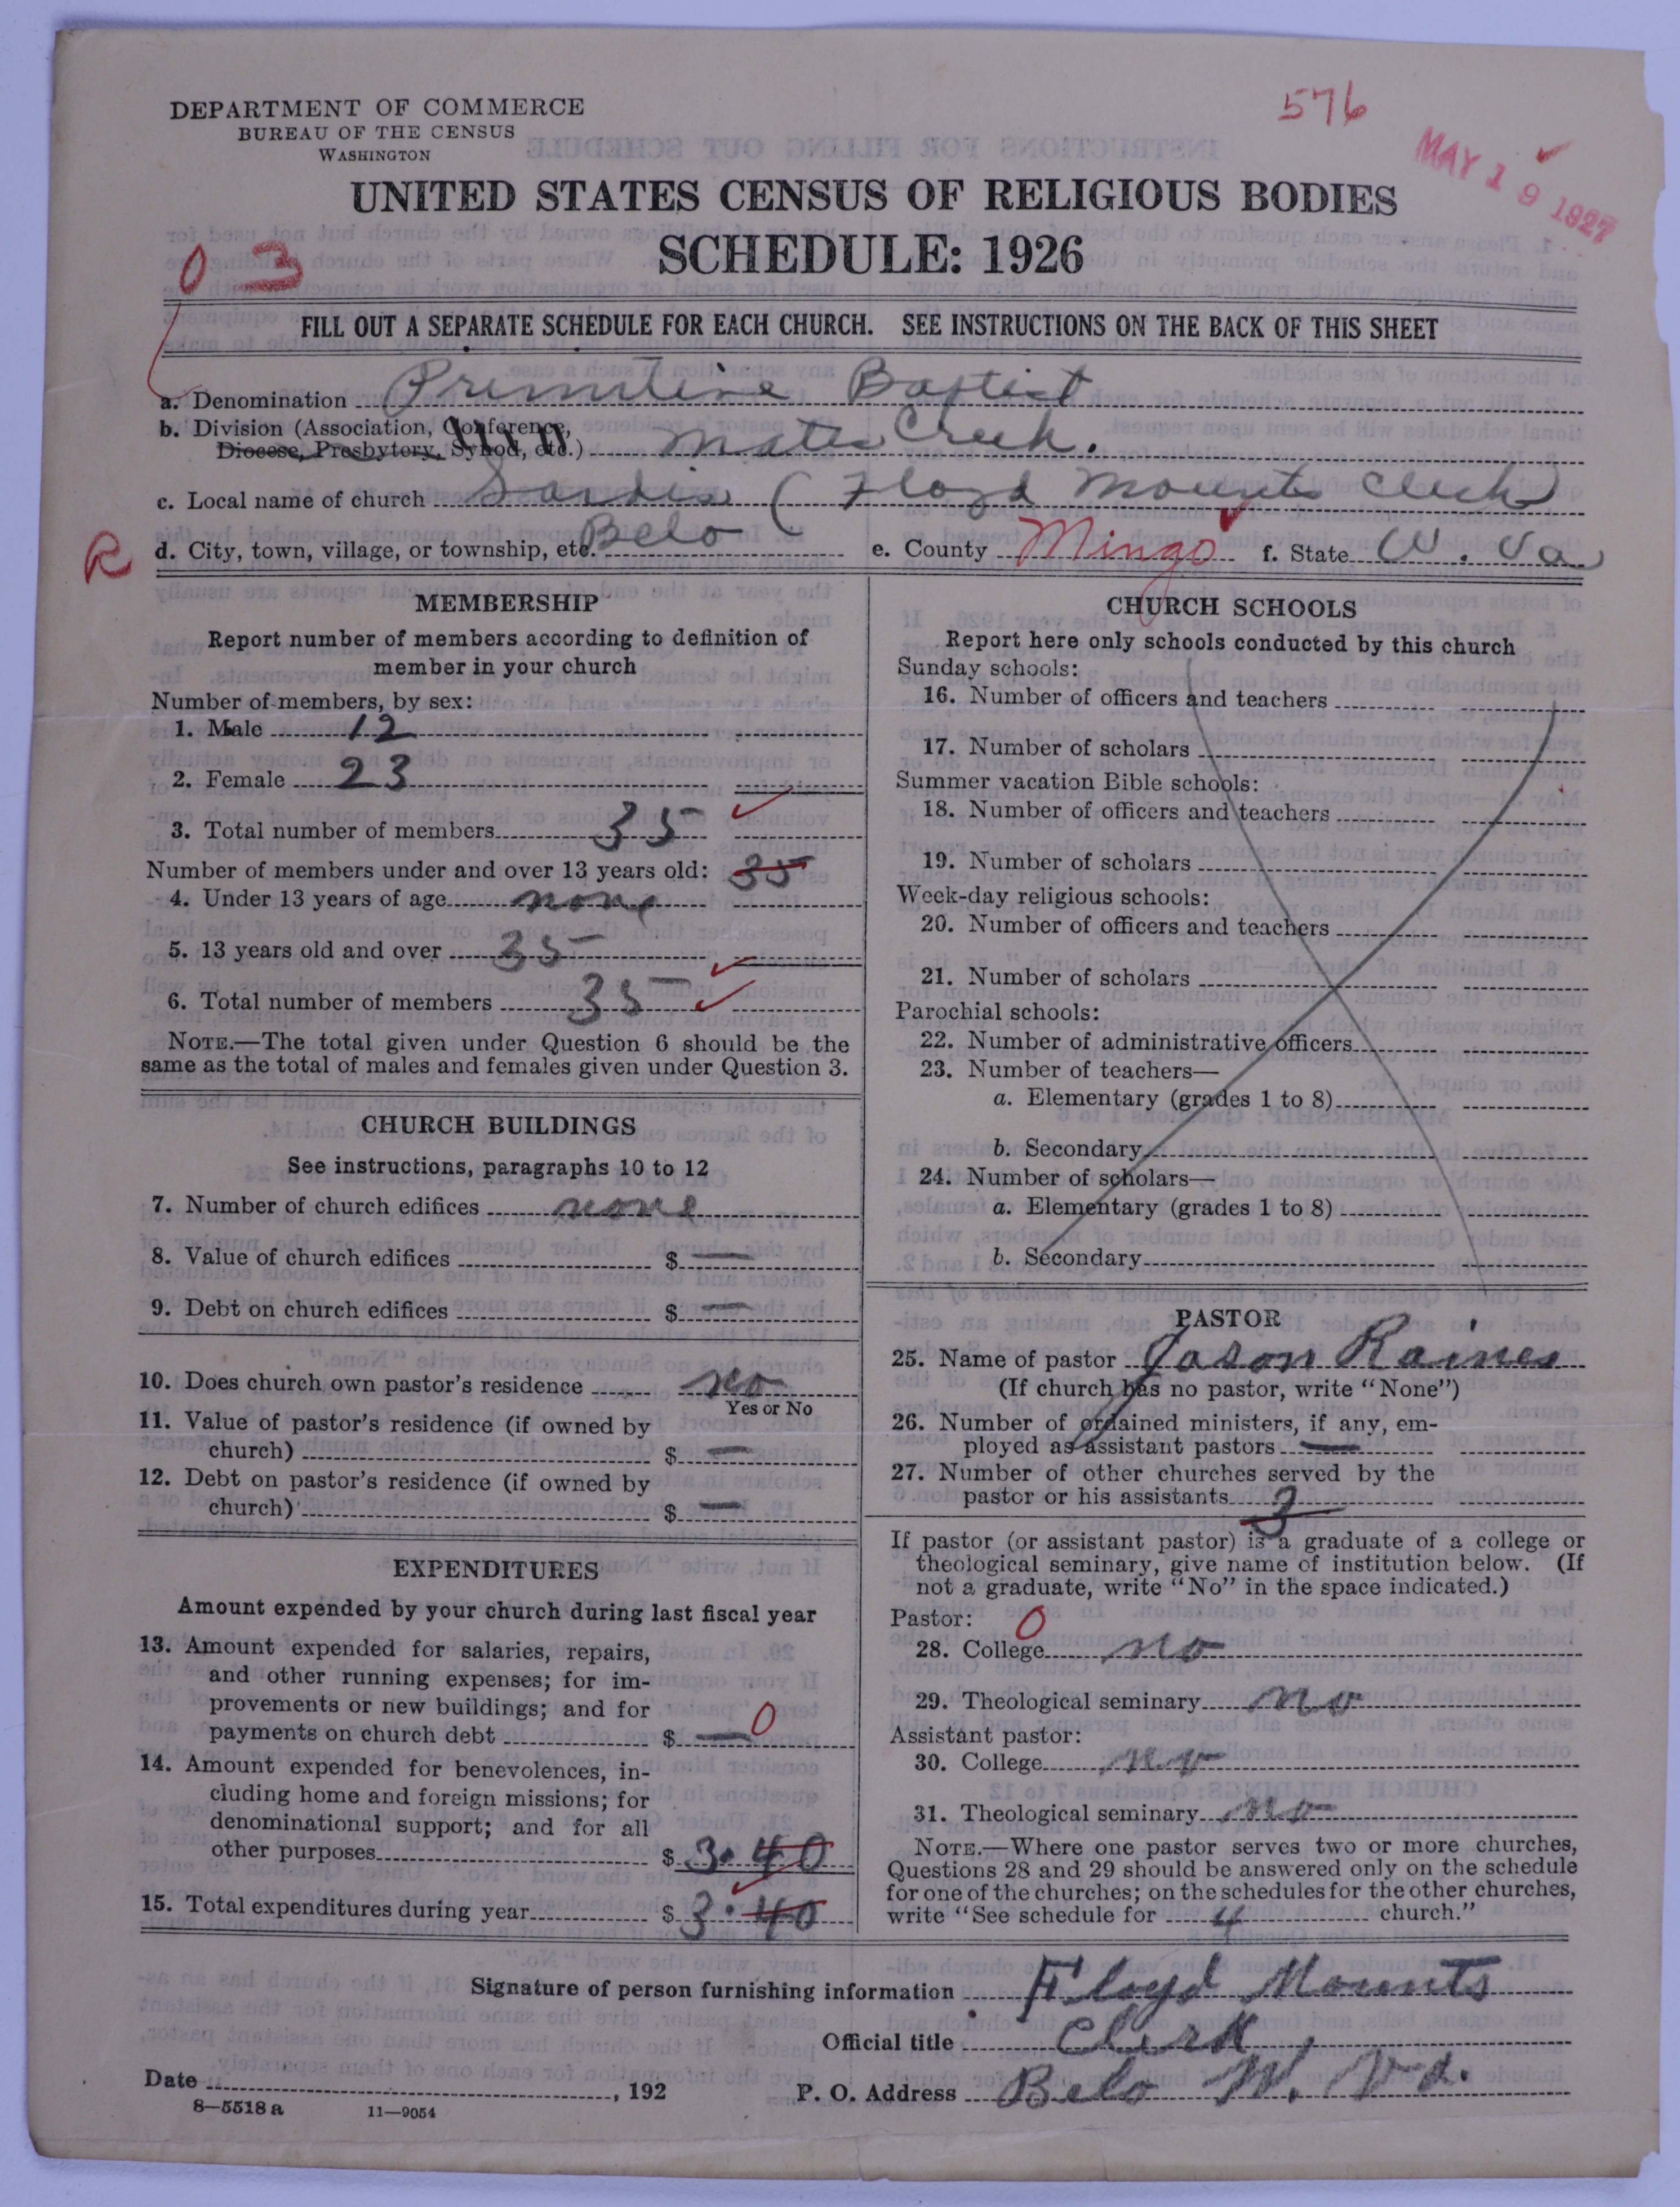 DEPARTMENT OF COMMERCE
BUREAU OF THE CENSUS
WASHINGTON
576
MAY 19 1927
UNITED STATES CENSUS OF RELIGIOUS BODIES
SCHEDULE: 1926
0 3
FILL OUT A SEPARATE SCHEDULE FOR EACH CHURCH. SEE INSTRUCTIONS ON THE BACK OF THIS SHEET
a. Denomination Primitive Baptist
b. Division (Association, Conference,
Diocese, Presbytery, Synod, etc.) Mates Creek.
c. Local name of church Sardis (Floyd Mounts Clerk)
R d. City, town, village, or township, etc. Belo e. County Mingo f. State W. Va
MEMBERSHIP
Report number of members according to definition of
member in your church
Number of members, by sex:
1. Male 12
2. Female 23
3. Total number of members 35
Number of members under and over 13 years old: 35
4. Under 13 years of age none
5. 13 years old and over 35
6. Total number of members 35
NOTE.—The total given under Question 6 should be the
same as the total of males and females given under Question 3.
CHURCH BUILDINGS
See instructions, paragraphs 10 to 12
7. Number of church edifices none
8. Value of church edifices $ —
9. Debt on church edifices $ —
10. Does church own pastor's residence no
Yes or No
11. Value of pastor's residence (if owned by
church) $ —
12. Debt on pastor's residence (if owned by
church) $ —
EXPENDITURES
Amount expended by your church during last fiscal year
13. Amount expended for salaries, repairs,
and other running expenses; for im-
provements or new buildings; and for
payments on church debt $ — 0
14. Amount expended for benevolences, in-
cluding home and foreign missions; for
denominational support; and for all
other purposes $ 3.40
15. Total expenditures during year $ 3.40
CHURCH SCHOOLS
Report here only schools conducted by this church
Sunday schools:
16. Number of officers and teachers
17. Number of scholars
Summer vacation Bible schools:
18. Number of officers and teachers
19. Number of scholars
Week-day religious schools:
20. Number of officers and teachers
21. Number of scholars
Parochial schools:
22. Number of administrative officers
23. Number of teachers—
a. Elementary (grades 1 to 8)
b. Secondary
24. Number of scholars—
a. Elementary (grades 1 to 8)
b. Secondary
PASTOR
25. Name of pastor Jason Raines
(If church has no pastor, write "None")
26. Number of ordained ministers, if any, em-
ployed as assistant pastors —
27. Number of other churches served by the
pastor or his assistants 3
If pastor (or assistant pastor) is a graduate of a college or
theological seminary, give name of institution below. (If
not a graduate, write "No" in the space indicated.)
Pastor: 0
28. College no
29. Theological seminary no
Assistant pastor:
30. College no
31. Theological seminary no
NOTE.—Where one pastor serves two or more churches,
Questions 28 and 29 should be answered only on the schedule
for one of the churches; on the schedules for the other churches,
write "See schedule for 4 church."
Signature of person furnishing information Floyd Mounts
Official title Clerk
Date , 192
P. O. Address Belo W. Va.
8—5518 a 11—9054